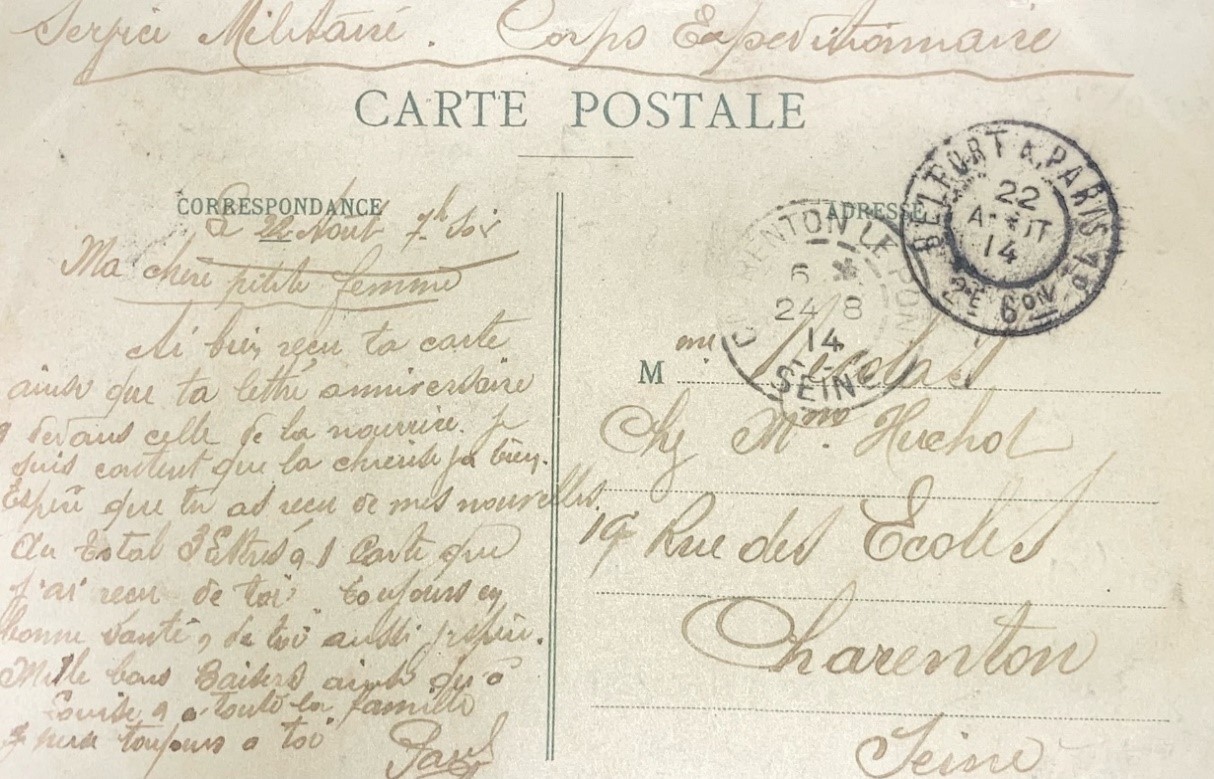 Service Militaire. Corps Expeditionnaire
CARTE POSTALE
CORRESPONDANCE
Le 22 Aout 7h Soir
Ma chere petite femme
Ai bien reçu ta carte
ainsi que ta lettre anniversaire
dedans celle de la nourrice. Je
suis content que la cherise va bien.
Espère que tu as recu de mes nouvelles.
Au total 3 lettres 1 Carte que
j'ai recu de toi toujours en
bonne santé, de toi aussi j'espère.
Mille bons Baisers ainsi qu'a
Louise a toute la famille
toujours a toi
Paul
ADRESSE
BELFORT A PARIS
22
AOUT
14
2E
CHARENTON LE PONT
6
24 8
14
SEINE
M me Nicolas
Chez Mme. Huchot
19 Rue des Ecoles
Charenton
Seine